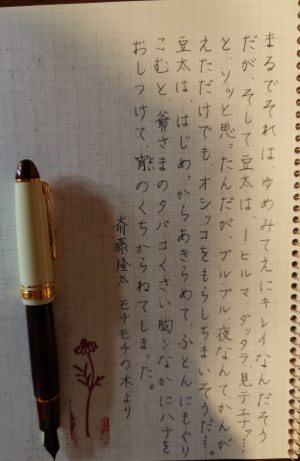 まるでそれは、ゆめみてえにキレイなんだそう
だが、そして豆太は、――ヒルマ、ダッタラ、見テエナァ……
と、ソッと思ったんだが、ブルブル、夜なんてかんが
えただけでも、オシッコをもらしちまいそうだ……。
豆太は、はじめっからあきらめて、ふとんにもぐり
こむと、爺さまのタバコくさい胸ンなかにハナを
おしつけて、宵のくちからねてしまった。
斎藤隆太 モチモチの木より